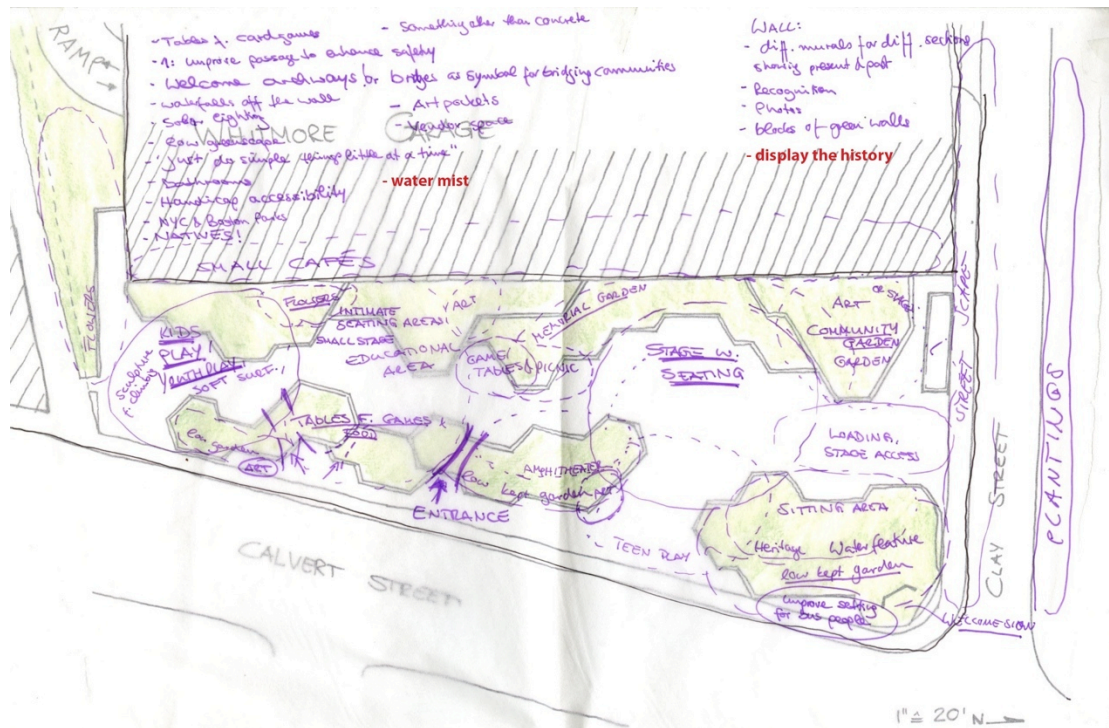 RAMP
- Tables f. cardgames
- 1: improve passage to enhance safety
- Welcome archways/or bridges as symbol for bridging communities
- waterfalls off the wall
- Solar lighting
- low greenscape
- "just do simple things little at a time"
- Bathrooms
- Handicap accessibility
- NYC & Boston Parks
- NATIVES!
- Something other than concrete
- Art pockets
- Vendor space
- water mist
WHITMORE GARAGE
WALL:
- diff. murals for diff. sections
showing present & past
- Recognition
- Photos
- blocks of green walls
- display the history
SMALL CAFÉS
FLOWERS
FLOWERS
KIDS
PLAY
YOUTH PLAY
SOFT SURF.
Sculpture
f. climbing
INTIMATE
SEATING AREAS
SMALL STAGE
EDUCATIONAL
AREA
ART
MEMORIAL GARDEN
GAME
TABLES
PICNIC
STAGE W.
SEATING
ART
OR STAGE
COMMUNITY
GARDEN
GARDEN
STREET SCAPE
LOADING,
STAGE ACCESS
TABLES F. GAMES &
FOOD
low garden
ART
ENTRANCE
AMPHITHEATER
low kept garden
ART
TEEN PLAY
SITTING AREA
Heritage Waterfeature
low kept garden
improve seating
for bus people
WELCOME SIGN
CALVERT STREET
CLAY STREET
PLANTINGS
1" ≙ 20' N